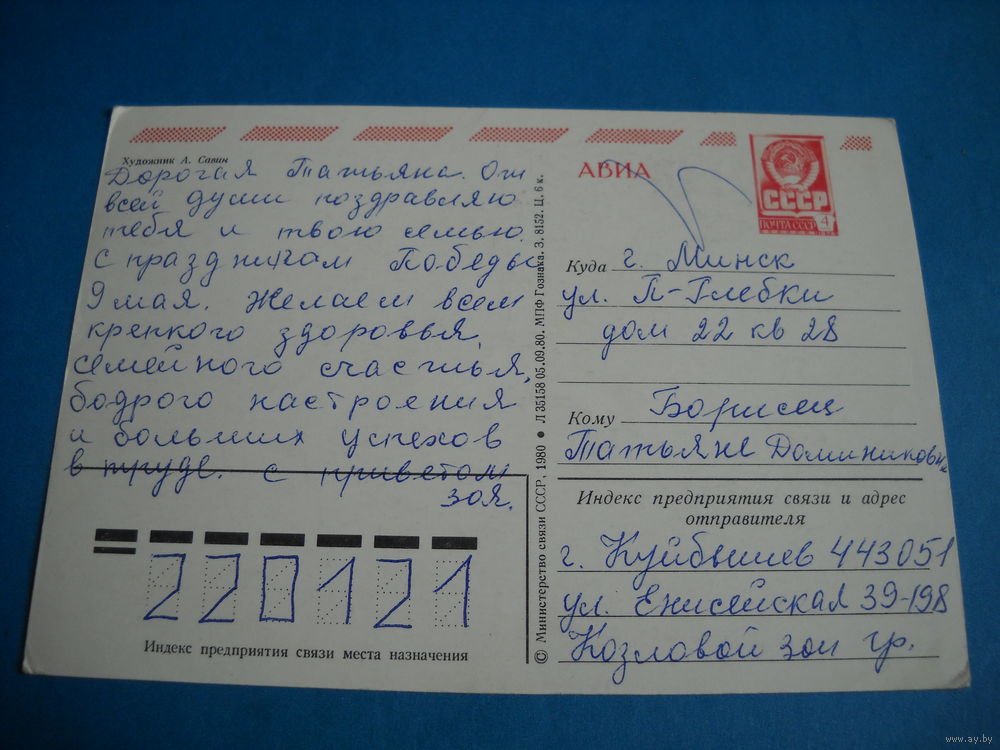 Художник А. Савин
Дорогая Татьяна. От
всей души поздравляю
тебя и твою семью.
С праздником Победы
9 мая. Желаем всем
крепкого здоровья,
семейного счастья,
бодрого настроения
и больших успехов
в труде. С приветом
Зоя.
220121
Индекс предприятия связи места назначения
© Министерство связи СССР, 1980 ● Л 35158 05.09.80. МПФ Гознака. З. 8152. Ц. 6 к.
АВИА
СССР
ПОЧТА СССР 4
Куда г. Минск
ул. П-Глебки
дом 22 кв 28
Кому Борисец
Татьяне Доминиковне
Индекс предприятия связи и адрес
отправителя
г. Куйбышев 443051
ул. Енисейская 39-198
Козловой Зои гр.
www.ay.by